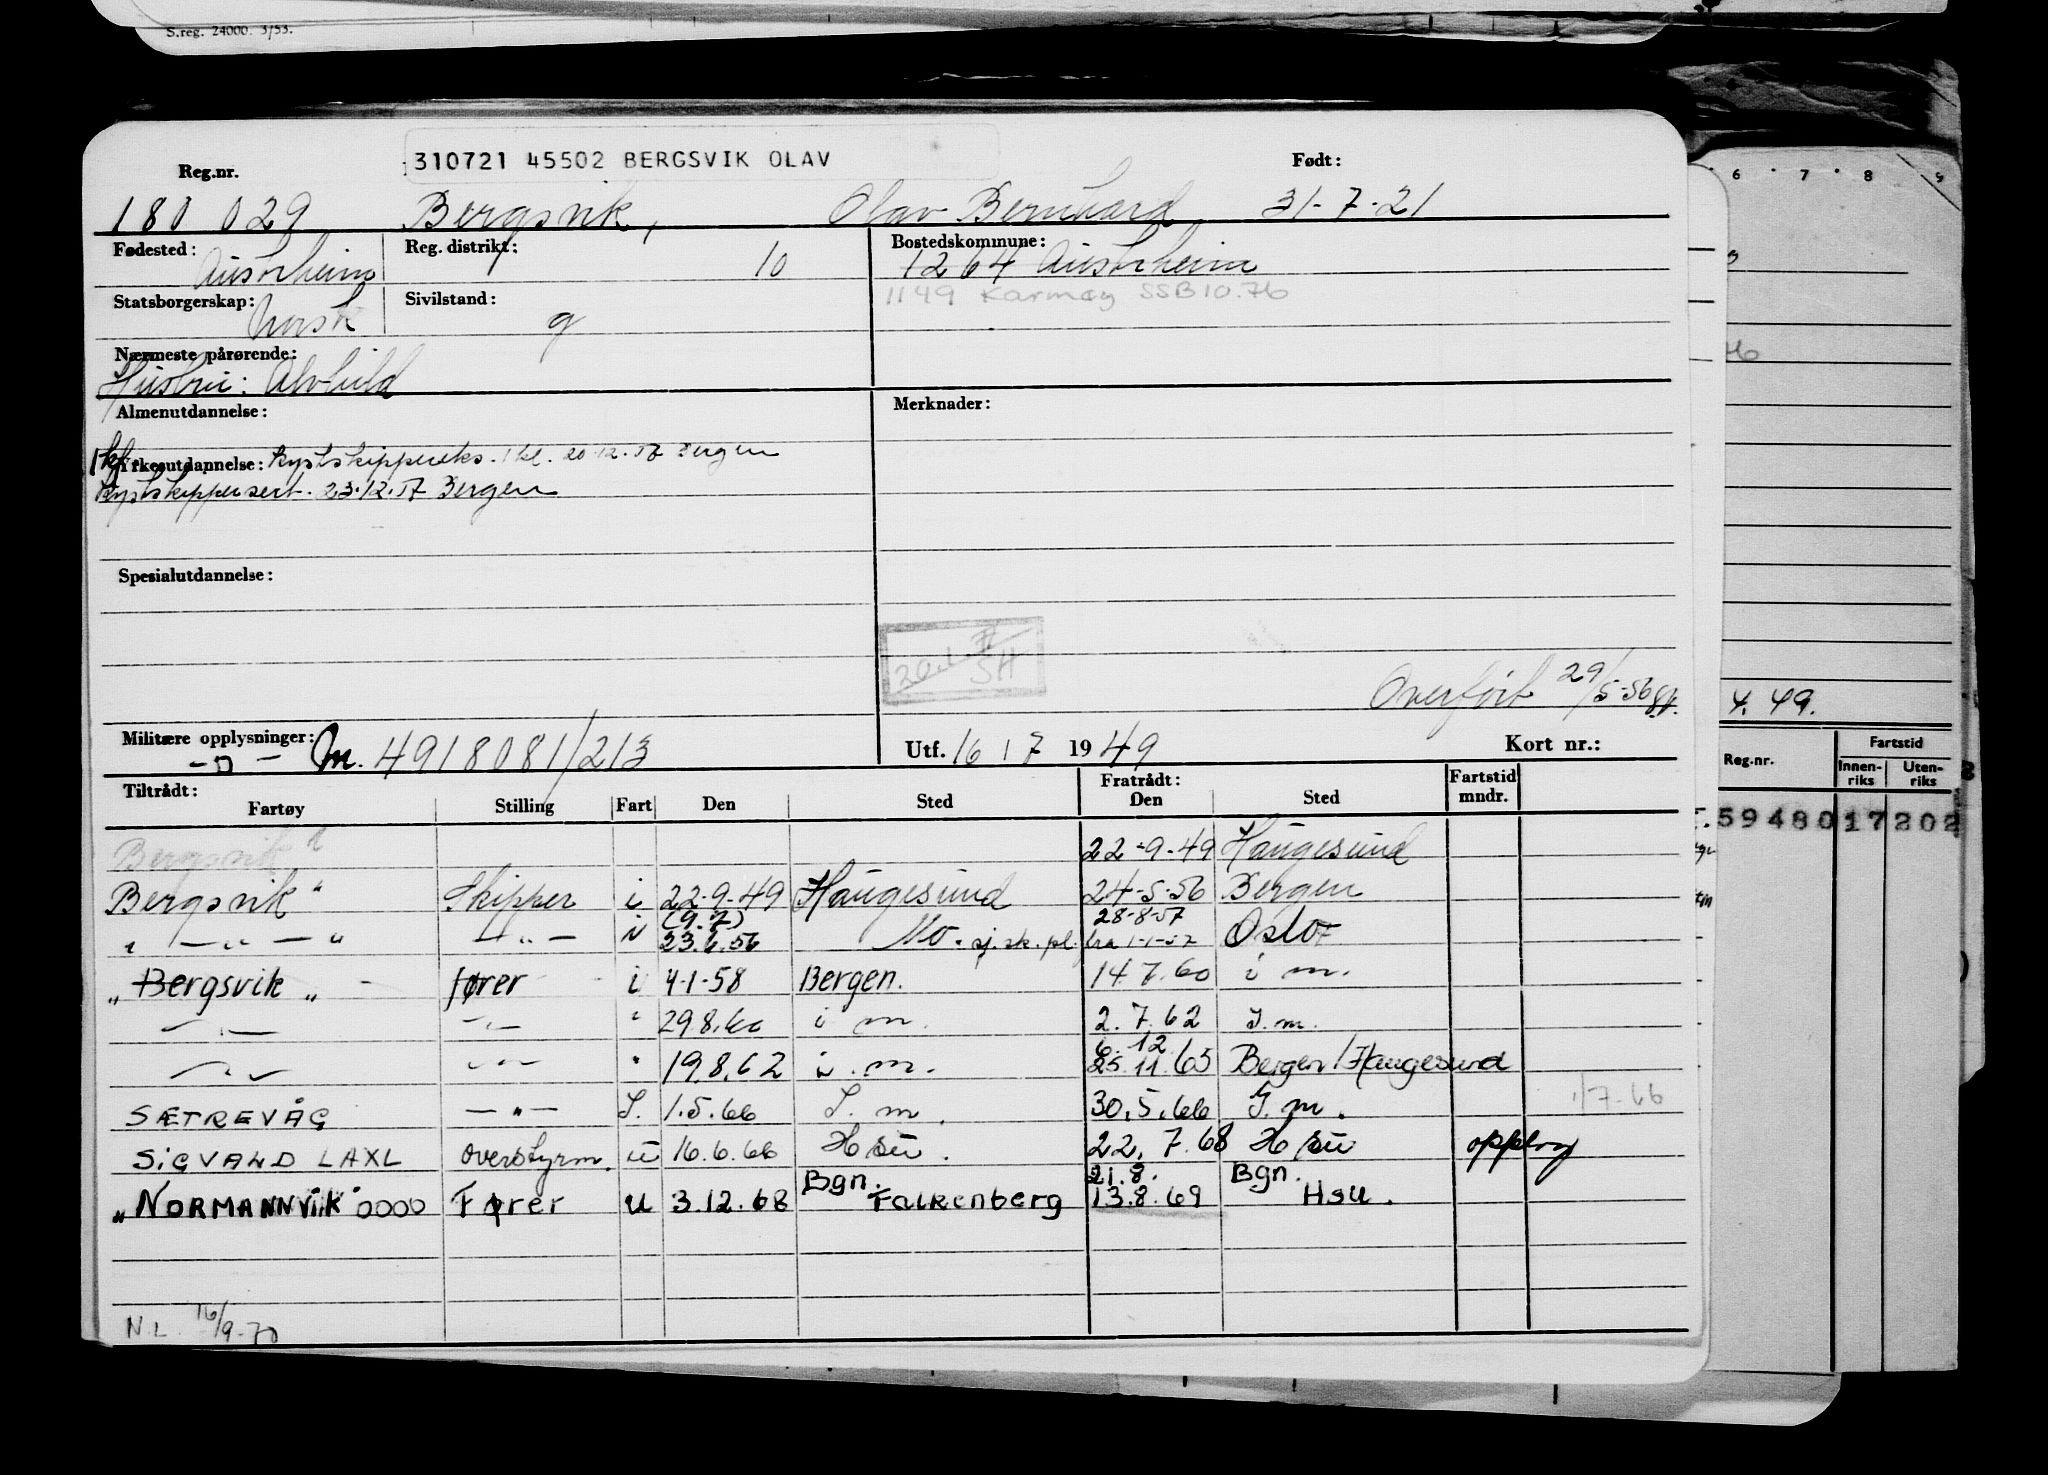 S.reg. 24000. 3/53.
310721 45502 BERGSVIK OLAV
Reg.nr. Født:
180 029 Bergsvik, Olav Bernhard 31-7-21
Fødested: Austrheim Reg. distrikt: 10 Bostedskommune: 1264 Austrheim
1149 Karmøy SSB10.76
Statsborgerskap: norsk Sivilstand: g
Nærmeste pårørende:
Hustru: Alvhild
Almenutdannelse: Merknader:
Yrkesutdannelse: Kystskippereks. 1 kl. 20.12.57 Bergen
Kystskippersert. 23.12.57 Bergen
Spesialutdannelse:
SH
Overført 29/5-56
Militære opplysninger: M. 4918081/213 Utf. 16 / 7 1949 Kort nr.:
Tiltrådt: Fratrådt: Fartstid
Fartøy Stilling Fart Den Sted Den Sted mndr.
Bergsvik 22-9-49 Haugesund
Bergsvik" Skipper i 22-9-49 Haugesund 24-5-56 Bergen
(9.7) 28-8-57
" — " — " — " — 23.6.56 Mo. sj.sk.pl. fra 1-1-57 Oslo
"Bergsvik" - fører i 4-1-58 Bergen. 14.7.60 i m.
— " — — " — " 29.8.60 i m. 2.7.62 I.m.
6. 12
— " — — " — " 19.8.62 i. m. 25.11.65 Bergen/Haugesund
SÆTREVÅG — " — I. 1.5.66 I. m. 30.5.66 I. m. 1/7-66
SIGVALD LAXL overstyrm. u 16.6.66 Hsu. 22.7.68 Hsu opphog
Bgn. 21.8. Bgn.
"NORMANNVIK" 0000 Fører u 3.12.68 Falkenberg 13.8.69 Hsu.
N.L. 16/9-70
6 7 8 9
4.49.
Reg.nr. Fartstid
Innen-riks Uten-riks
59480 17 202